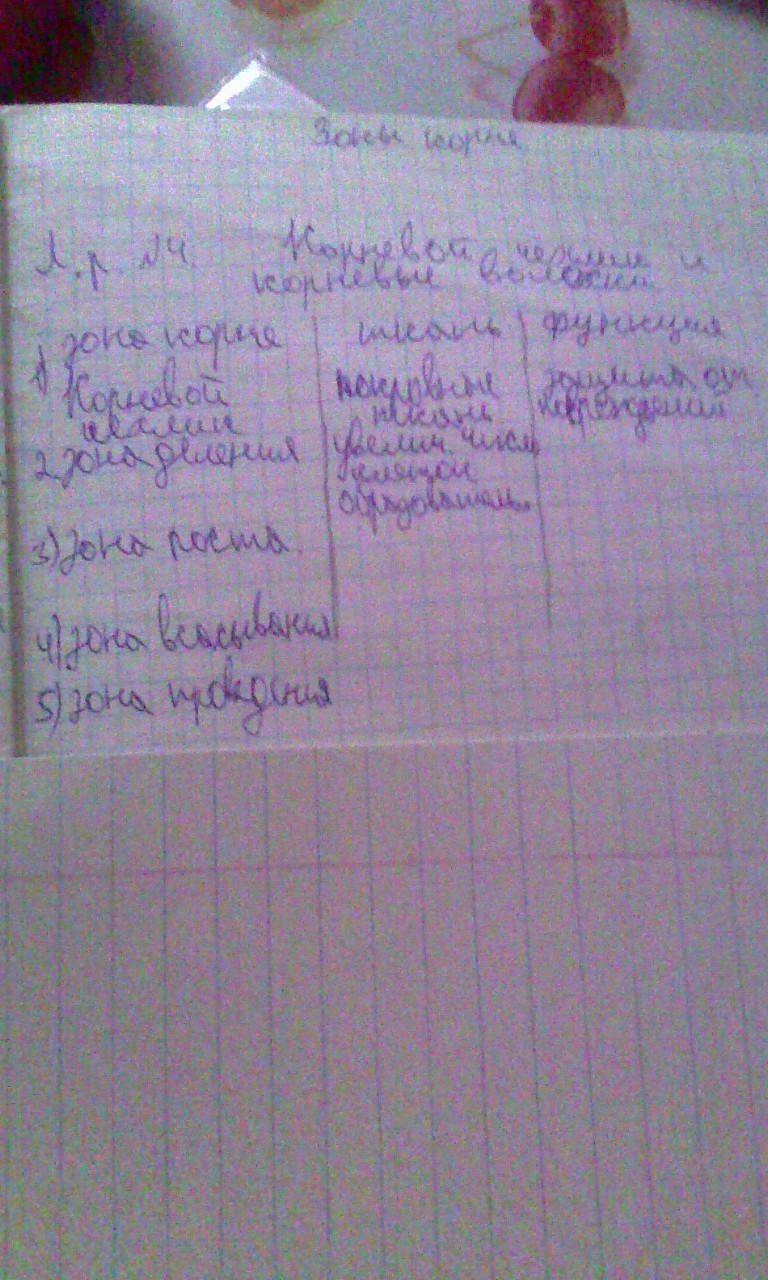 Зоны корня
Л.р. №4. Корневой чехлик и
корневые волоски
зона корня ткань функция
1) Корневой чехлик покровные ткани защита от повреждений
2 зона деления увелич. числ клеток образовательн.
3) зона роста
4) зона всасывания
5) зона проведения